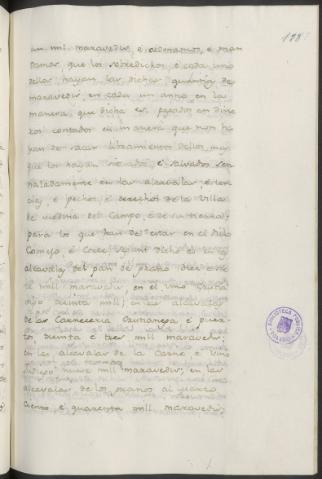 178
un mil maravedis, e ordenamos, e man
damos, que los sobredichos, e cada uno
dellos, hayan las dichas quantías de
maravedis en cada un anno en la
manera, que dicha es, pagados en dine
ros contados en manera que non ha
yan de sacar libramientos dellos, mas
que los hayan e salvados sen
naladamente en las alcavalas, e tercias,
e pechos, e derechos de la Villa
de Medina del Campo, e de su tierra;
para los que han de estar en el dicho
Consejo, e Corte, segunt dicho es en el
alcavala del pan de grano diez e
mil maravedis, en el vino
treinta mil; en las alcavalas
de las Carnecería Christianega, e
treinta e tres mil maravedis;
en las alcavalas de la Carne, e Vino
Judiego nueve mil maravedis; en las
alcavalas de los pannos al
ciento, e quarenta mil maravedis;
BIBLIOTECA